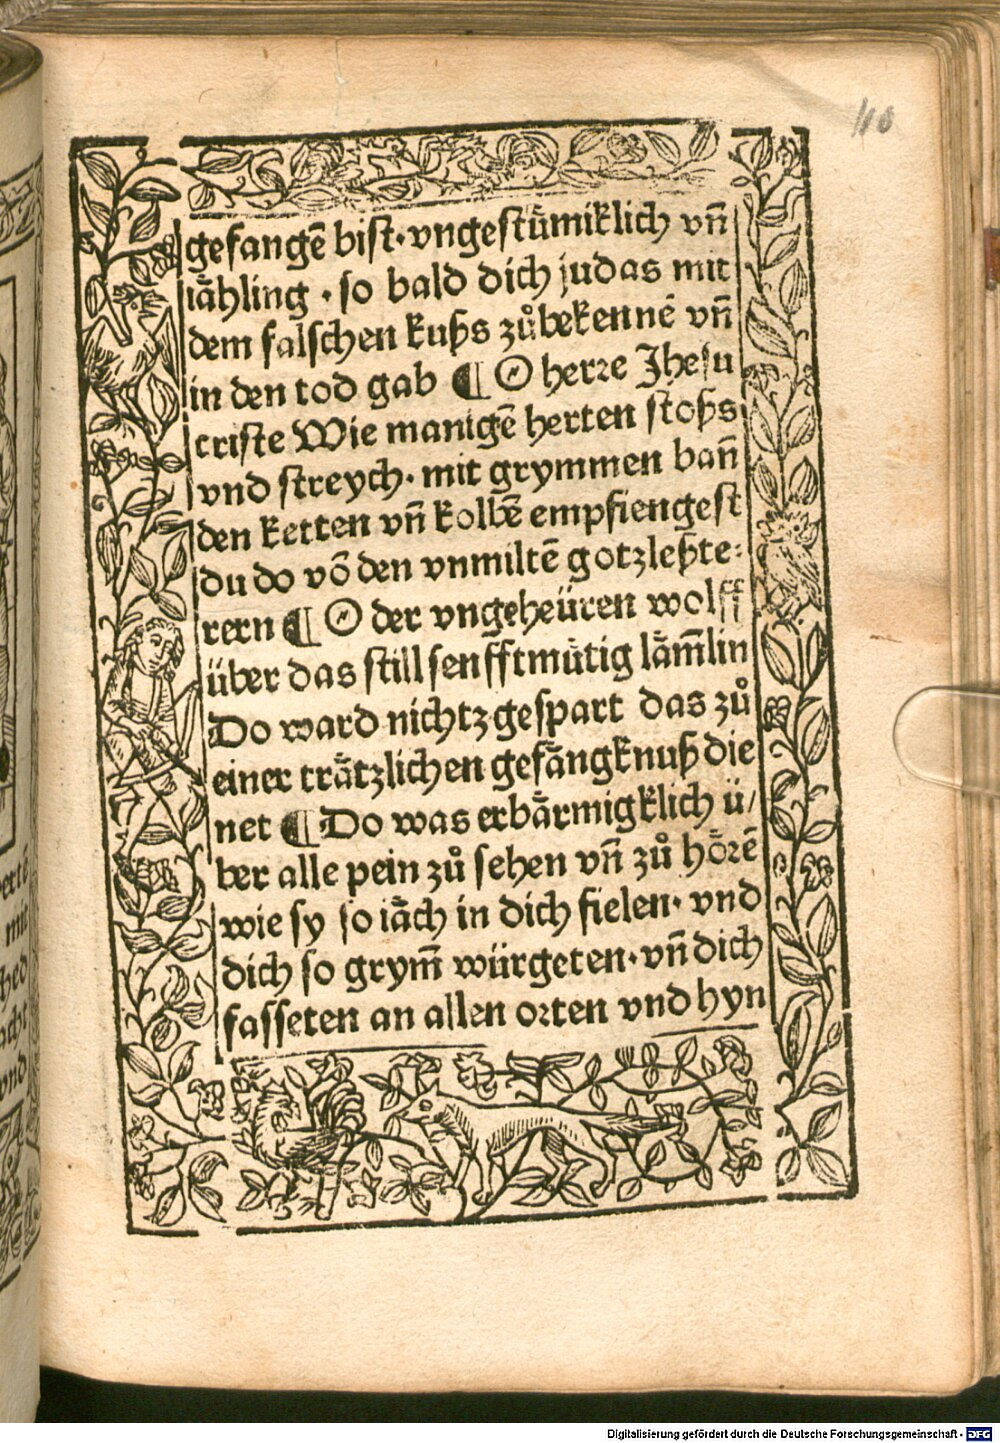 110
gefangẽ bist·vngestuͤmiklich vñ
iaͤhling · so bald dich judas mit
dem falschen kuſzs zuͦbekennẽ vñ
in den tod gab ¶ O herꝛe Jhesu
criste Wie manigẽ herten stoſzs
vnd streych· mit grymmen bañ
den ketten vñ kolbẽ empfiengest
du do võ den vnmiltẽ gotzleſzte⸗
rern ¶ O der vngeheüren wolff
über das still senfftmuͤtig laͤm̃lin
Do ward nichtz gespart das zuͦ
einer traͤtzlichen gefaͤngknuſz die
net ¶ Do was erbaͤrmigklich ü/
ber alle pein zuͦ sehen vñ zuͦ hoͤꝛẽ
wie sy so iaͤch in dich fielen· vnd
dich so grym̃ würgeten·vñ dich
fasseten an allen oꝛten vnd hyn
ertẽ
mit
hed
acht
vnd
Digitalisierung gefördert durch die Deutsche Forschungsgemeinschaft · DFG